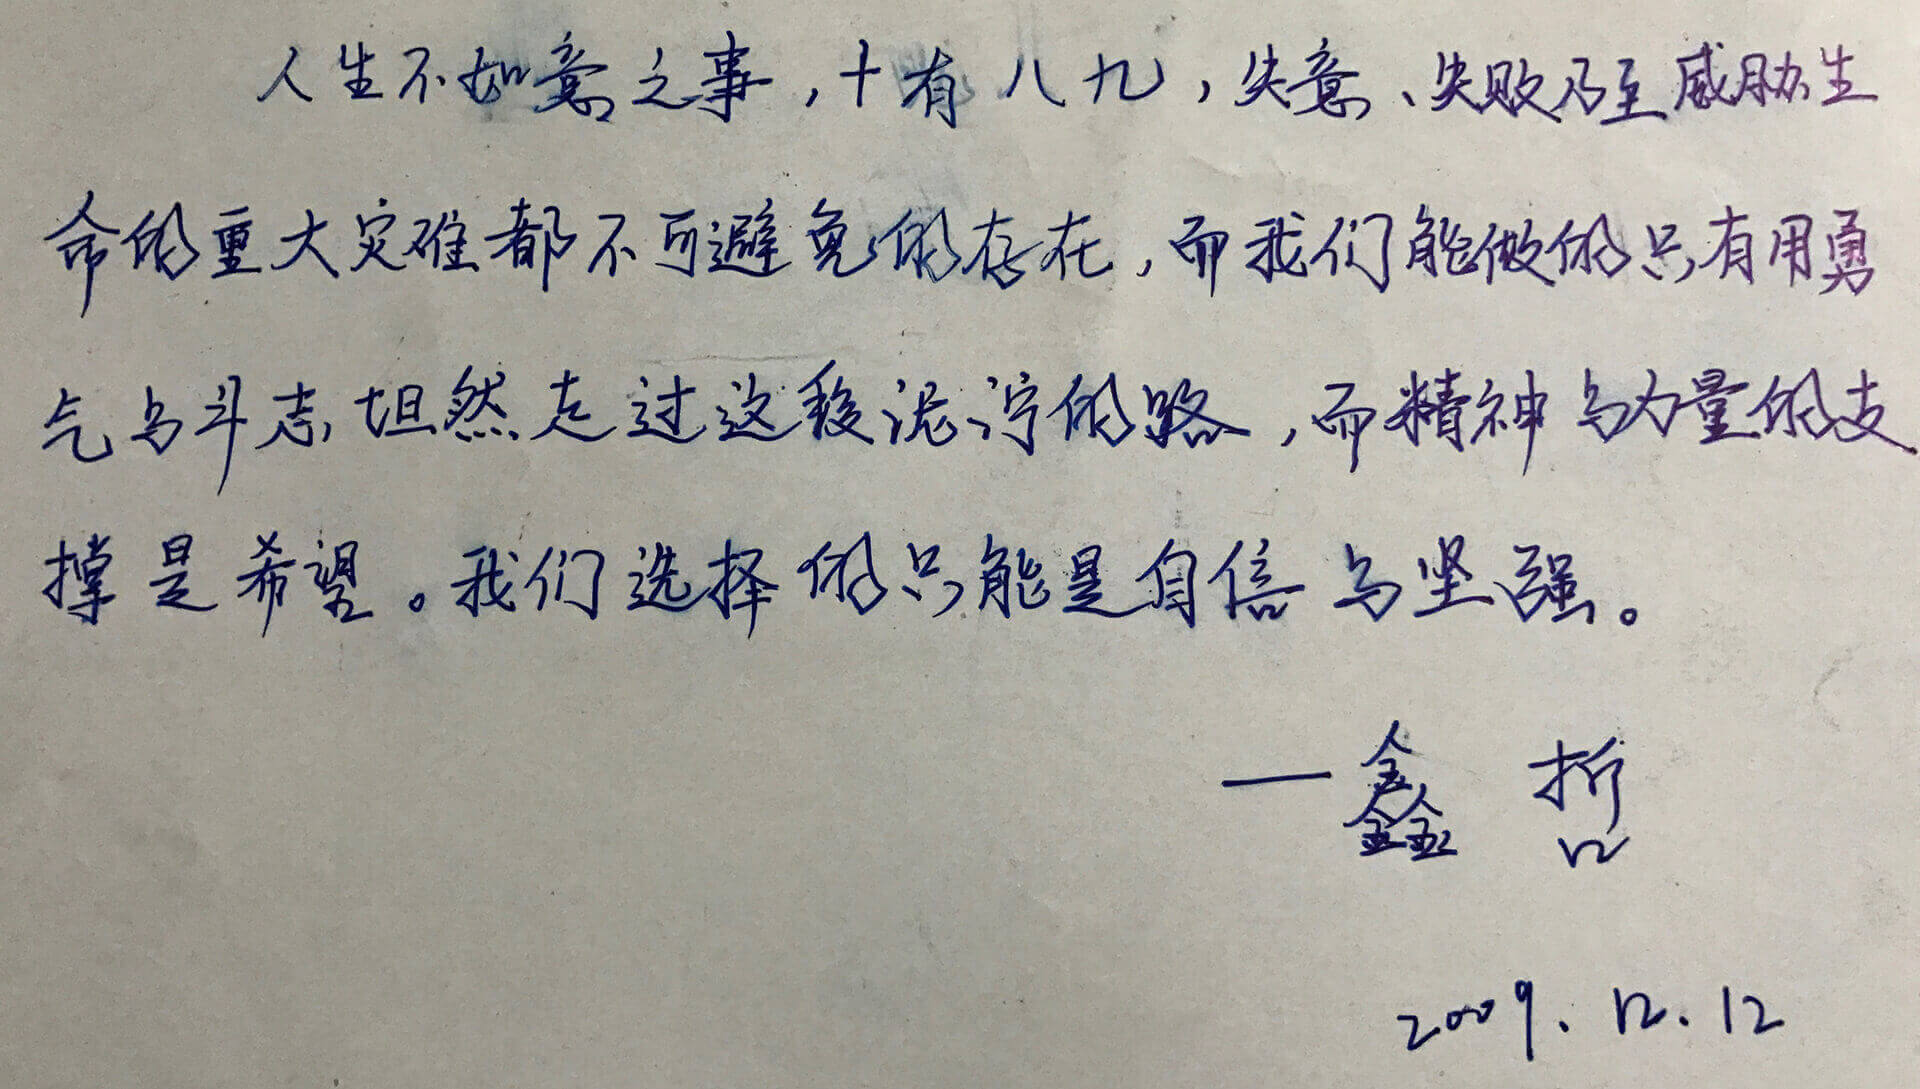 人生不如意之事，十有八九，失意、失败乃至威胁生
命的重大灾难都不可避免的存在，而我们能做的只有用勇
气与斗志坦然走过这段泥泞的路，而精神与力量的支
撑是希望。我们选择的只能是自信与坚强。
—鑫哲
2009.12.12